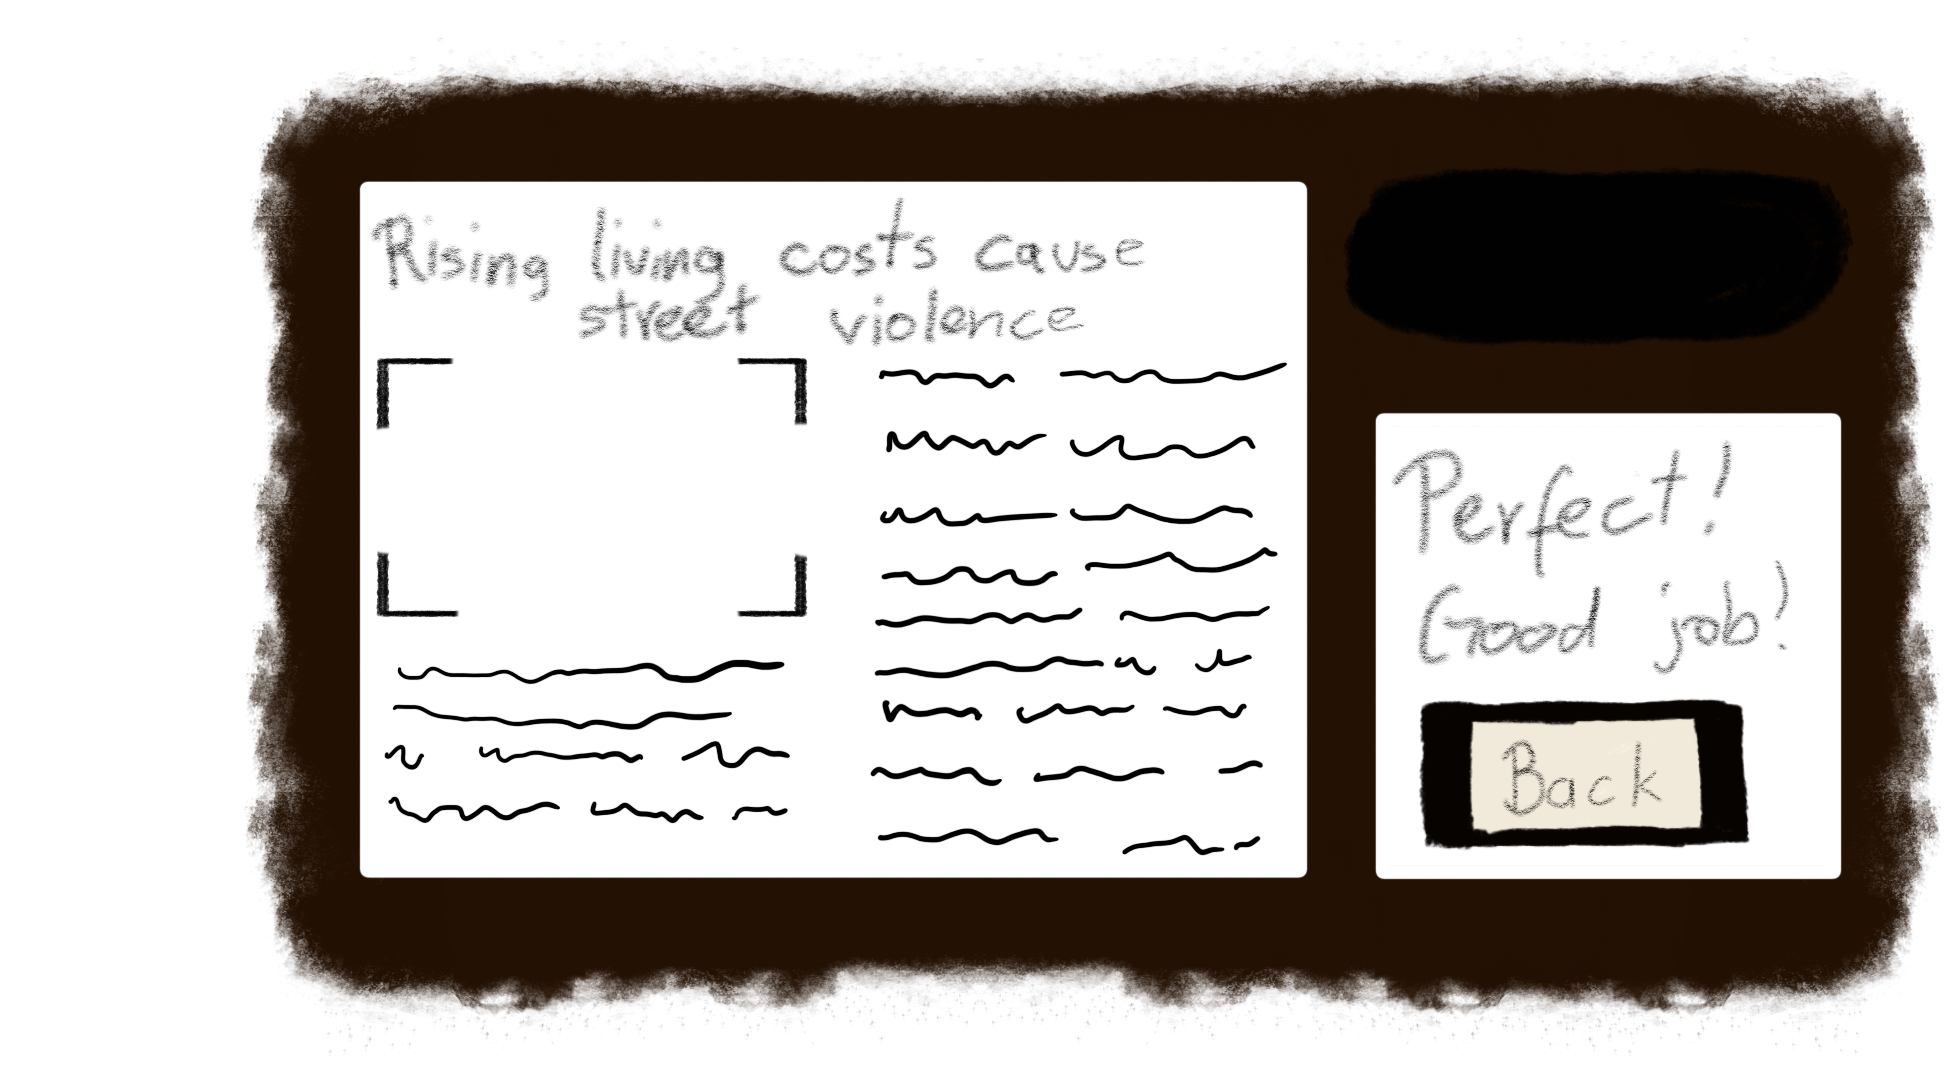 Rising living costs cause
street violence
Perfect!
Good job!
Back